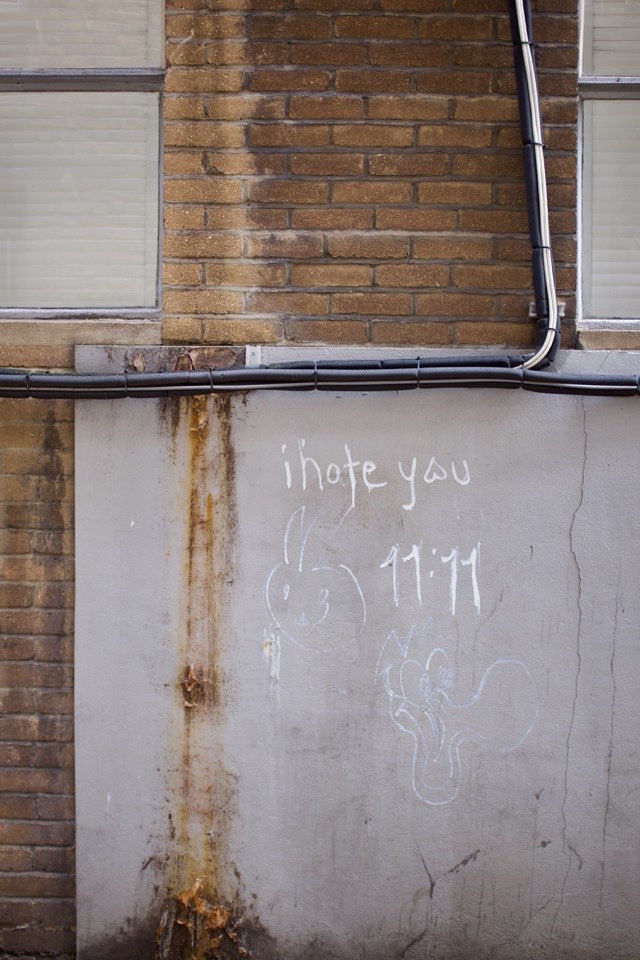 i hate you
11:11